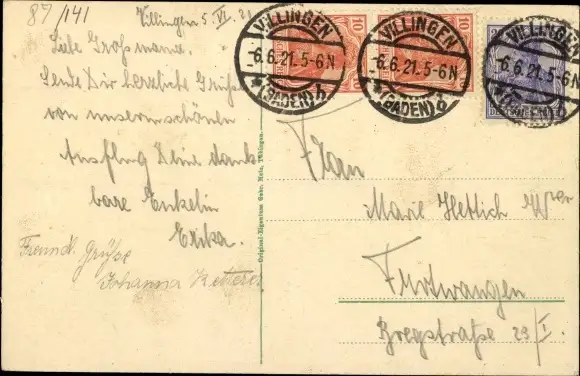 87/141
Villingen 5. VI. 21
Liebe Großmama.
Sende Dir herzliche Grüße
von unserm schönen
Ausflug Deine dank-
bare Enkelin
Erika.
Freundl. Grüße
Johanna Ketterer
VILLINGEN
-6.6.21.5-6N
*(BADEN)
VILLINGEN
-6.6.21.5-6N
*(BADEN)
VILLINGEN
-6.6.21.5-6N
(BADEN)
10
10
Original-Eigentum Gebr. Metz, Tübingen.
Frau
Marie Hettich Wwe
Furtwangen
Bregstraße 29/I.